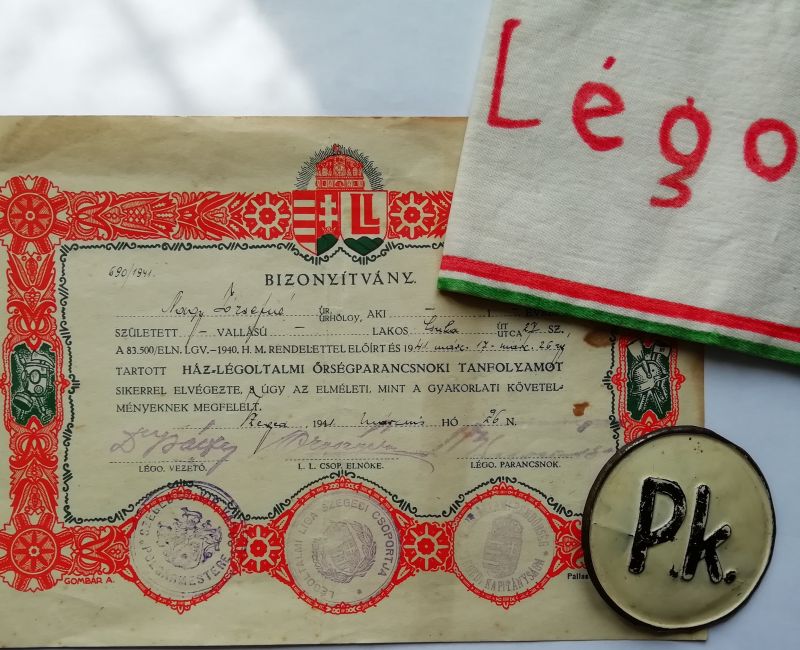 Légo
LL
690/1941.
BIZONYÍTVÁNY.
Nagy Józsefné ÚR. ÚRHÖLGY, AKI - I. ÉVBEN
SZÜLETETT - VALLÁSÚ - LAKOS Csuka ÚT UTCA 27 SZ.,
A 83.500/ELN. LGV.-1940. H. M. RENDELETTEL ELŐÍRT ÉS 1941 márc. 17-márc. 26-ig
TARTOTT HÁZ-LÉGOLTALMI ŐRSÉGPARANCSNOKI TANFOLYAMOT
SIKERREL ELVÉGEZTE, S ÚGY AZ ELMÉLETI, MINT A GYAKORLATI KÖVETEL-
MÉNYEKNEK MEGFELELT.
Szeged 1941 március HÓ 26 N.
LÉGO. VEZETŐ.
L. L. CSOP. ELNÖKE.
LÉGO. PARANCSNOK.
LÉGOLTALMI LIGA SZEGEDI CSOPORTJA
GOMBÁR A.
Pallas
P.k.